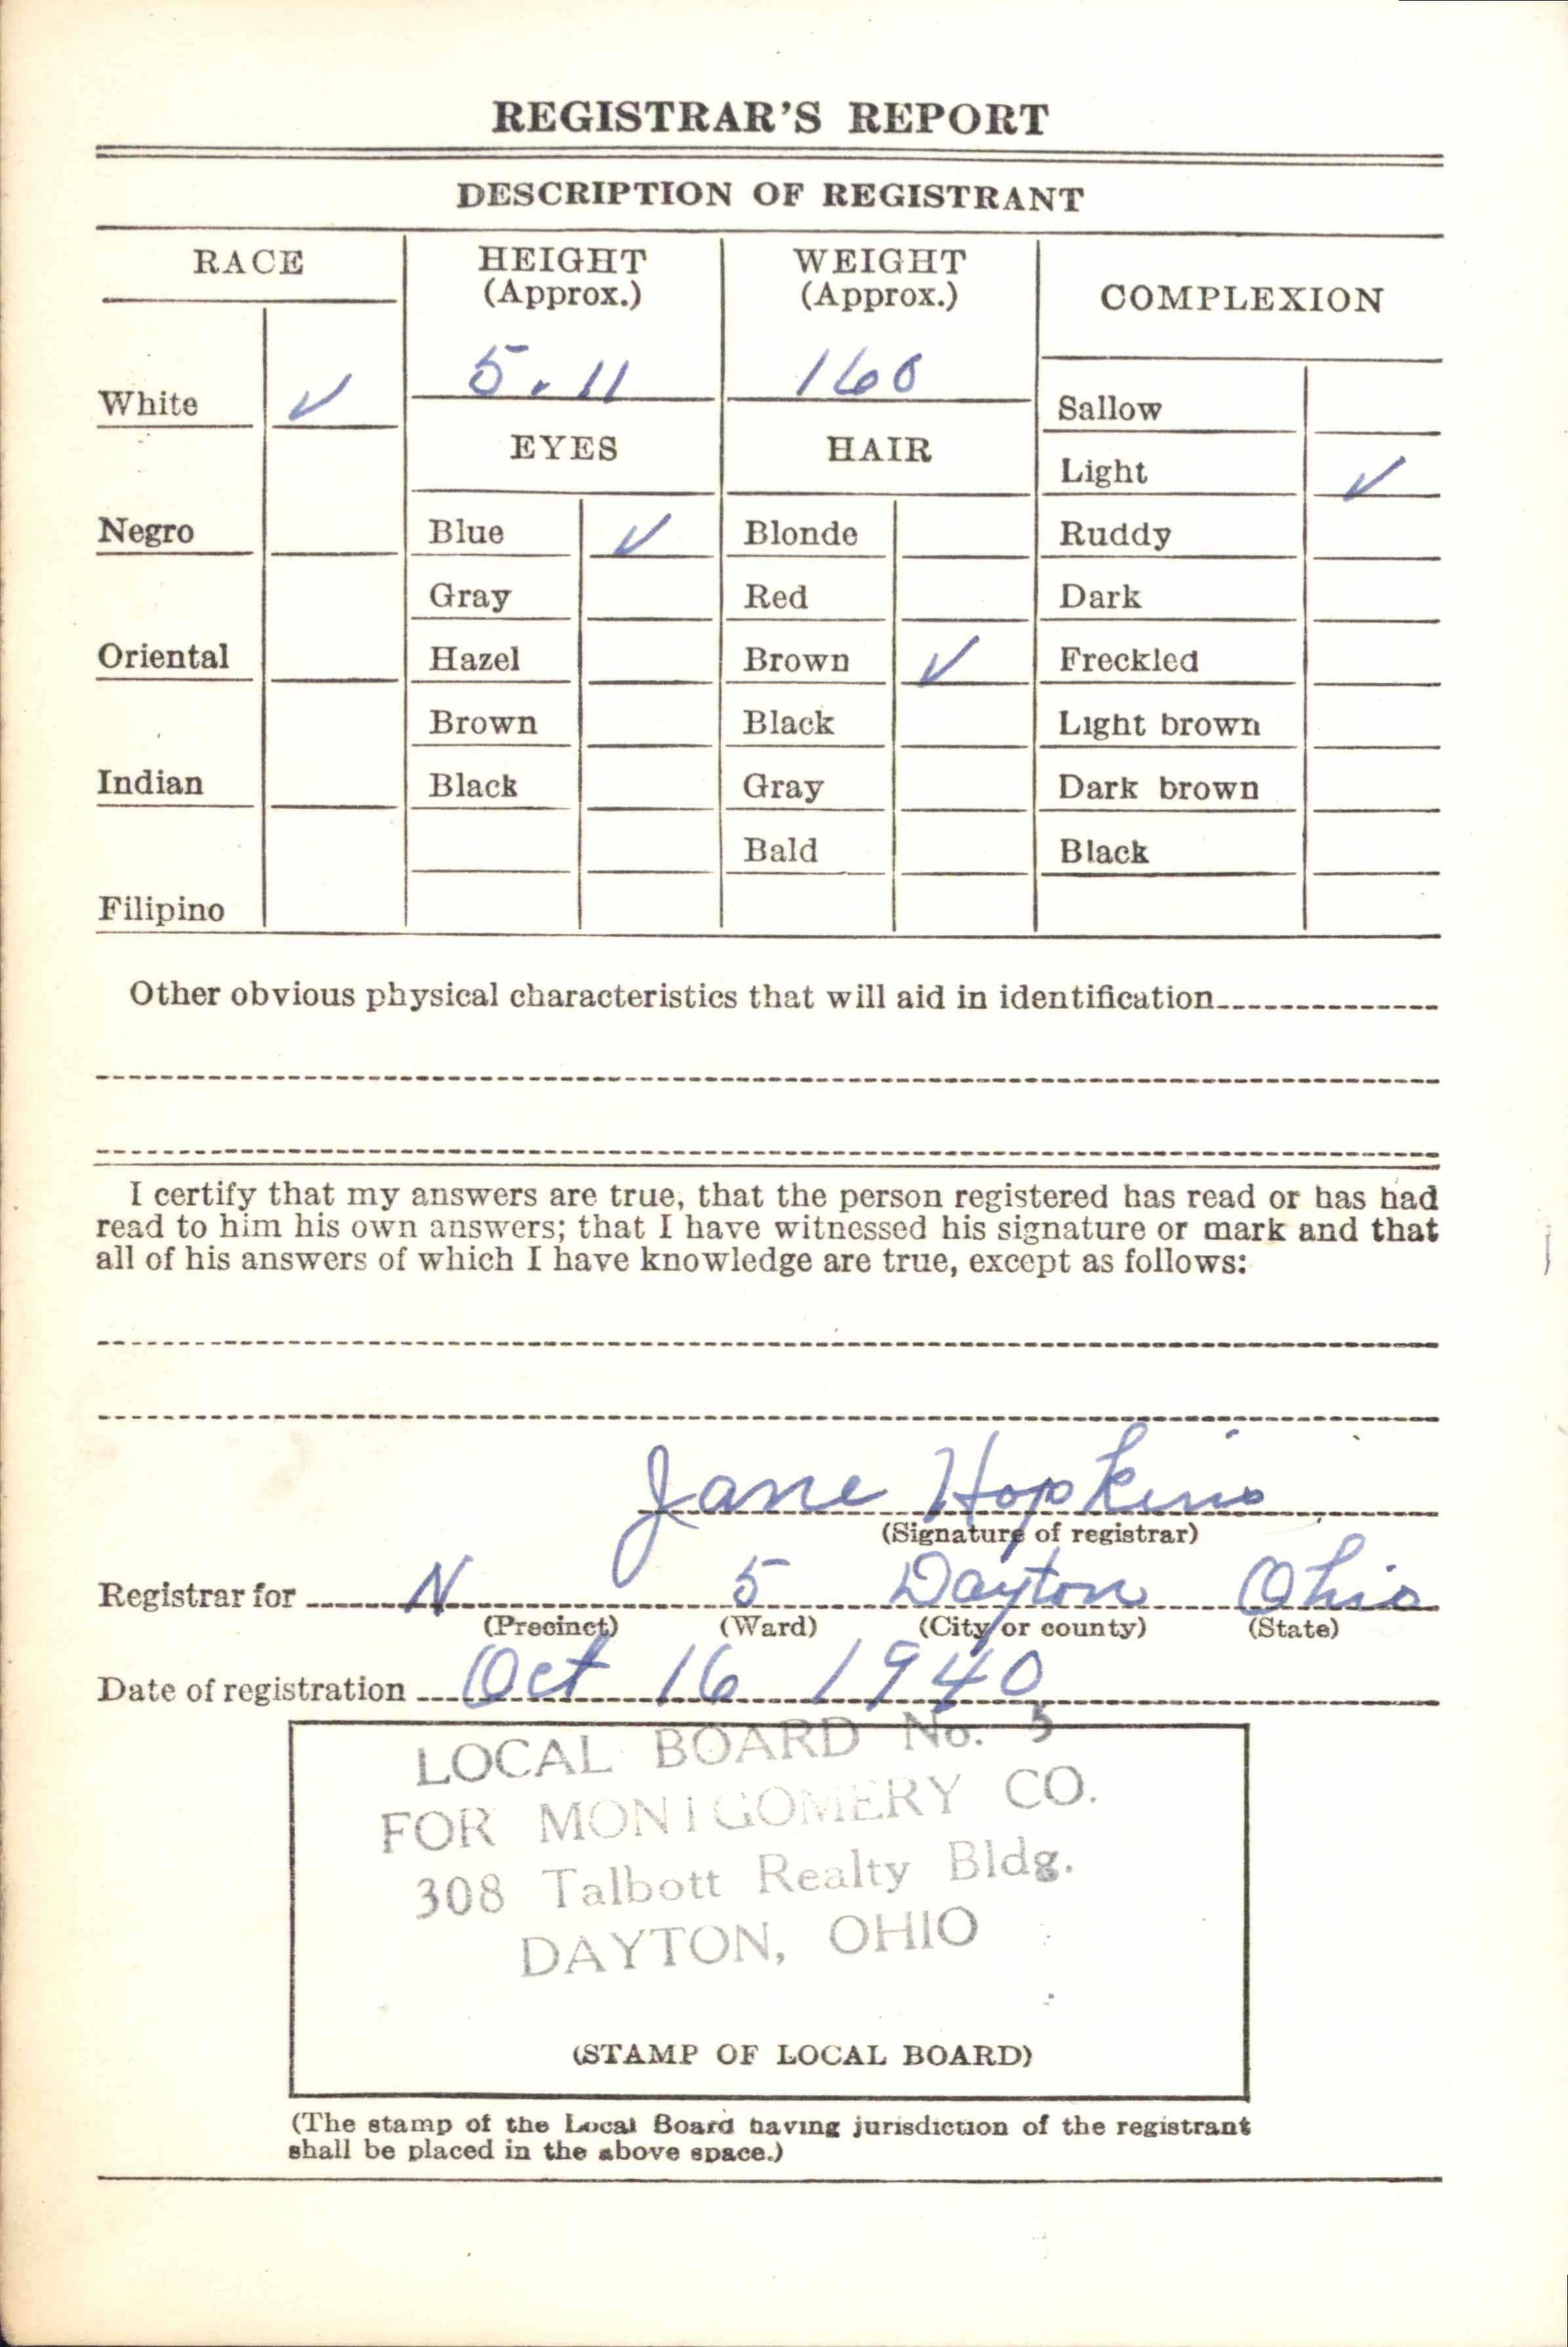 REGISTRAR'S REPORT
DESCRIPTION OF REGISTRANT
RACE
HEIGHT
(Approx.)
WEIGHT
(Approx.)
COMPLEXION
5.11
160
White ✓
Sallow
EYES
HAIR
Light ✓
Negro
Blue ✓
Blonde
Ruddy
Gray
Red
Dark
Oriental
Hazel
Brown ✓
Freckled
Brown
Black
Light brown
Indian
Black
Gray
Dark brown
Bald
Black
Filipino
Other obvious physical characteristics that will aid in identification
I certify that my answers are true, that the person registered has read or has had
read to him his own answers; that I have witnessed his signature or mark and that
all of his answers of which I have knowledge are true, except as follows:
Jane Hopkins
(Signature of registrar)
Registrar for N 5 Dayton Ohio
(Precinct) (Ward) (City or county) (State)
Date of registration Oct 16 1940
LOCAL BOARD No. 5
FOR MONTGOMERY CO.
308 Talbott Realty Bldg.
DAYTON, OHIO
(STAMP OF LOCAL BOARD)
(The stamp of the Local Board having jurisdiction of the registrant
shall be placed in the above space.)